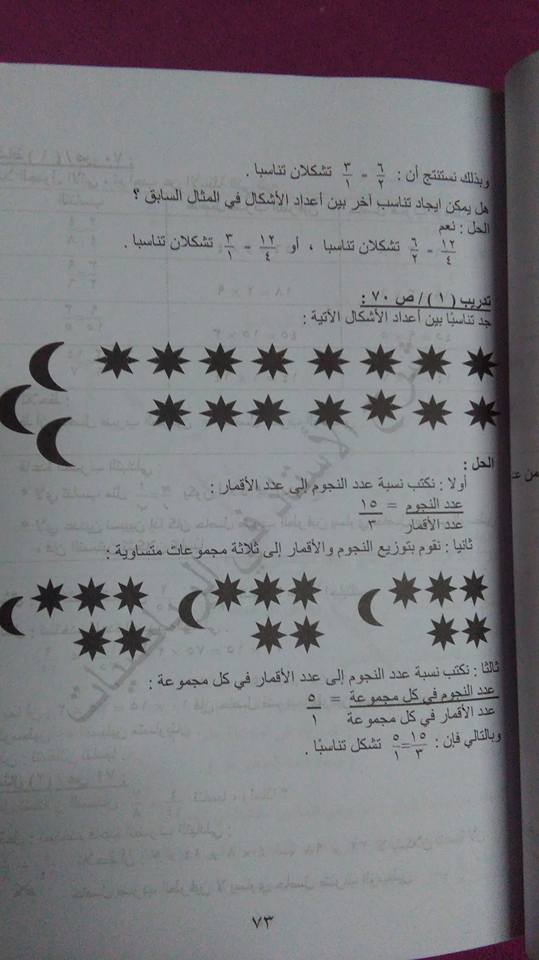 وبذلك نستنتج أن : ٦/٢ = ٣/١ تشكلان تناسبا .
هل يمكن ايجاد تناسب آخر بين أعداد الأشكال في المثال السابق ؟
الحل : نعم
١٢/٤ = ٦/٢ تشكلان تناسبا ، أو ١٢/٤ = ٣/١ تشكلان تناسبا .
تدريب ( ١ ) / ص ٧٠ :
جد تناسبًا بين أعداد الأشكال الآتية :
الحل :
أولا : نكتب نسبة عدد النجوم إلى عدد الأقمار :
عدد النجوم = ١٥
عدد الأقمار ٣
ثانيا : نقوم بتوزيع النجوم والأقمار إلى ثلاثة مجموعات متساوية :
ثالثا : نكتب نسبة عدد النجوم إلى عدد الأقمار في كل مجموعة :
عدد النجوم في كل مجموعة = ٥
عدد الأقمار في كل مجموعة ١
وبالتالي فإن : ١٥/٣ = ٥/١ تشكل تناسبًا .
٧٣